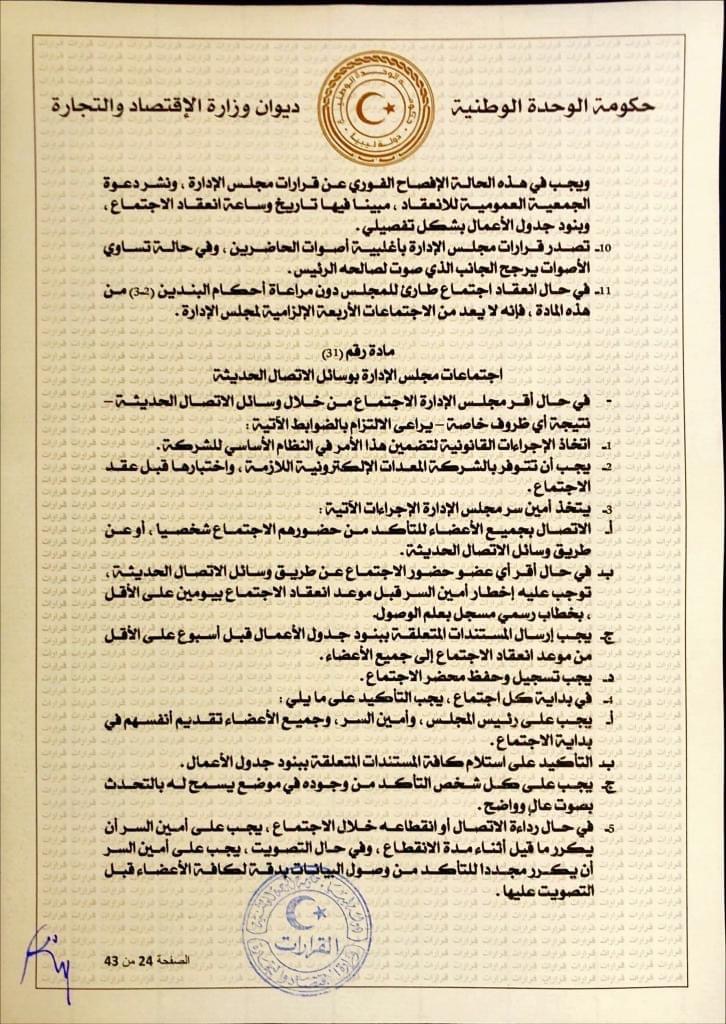 حكومة الوحدة الوطنية
ديوان وزارة الإقتصاد والتجارة
حكومة الوحدة الوطنية
دولة ليبيا
ويجب في هذه الحالة الإفصاح الفوري عن قرارات مجلس الإدارة ، ونشر دعوة
الجمعية العمومية للانعقاد ، مبينا فيها تاريخ وساعة انعقاد الاجتماع ،
وبنود جدول الأعمال بشكل تفصيلي .
10ـ تصدر قرارات مجلس الإدارة بأغلبية أصوات الحاضرين ، وفي حالة تساوي
الأصوات يرجح الجانب الذي صوت لصالحه الرئيس .
11ـ في حال انعقاد اجتماع طارئ للمجلس دون مراعاة أحكام البندين (2-3) من
هذه المادة ، فإنه لا يعد من الاجتماعات الأربعة الإلزامية لمجلس الإدارة .
مادة رقم (31)
اجتماعات مجلس الإدارة بوسائل الاتصال الحديثة
- في حال أقر مجلس الإدارة الاجتماع من خلال وسائل الاتصال الحديثة –
نتيجة أي ظروف خاصة – يراعى الالتزام بالضوابط الآتية :
1ـ اتخاذ الإجراءات القانونية لتضمين هذا الأمر في النظام الأساسي للشركة .
2ـ يجب أن تتوفر بالشركة المعدات الإلكترونية اللازمة ، واختبارها قبل عقد
الاجتماع .
3ـ يتخذ أمين سر مجلس الإدارة الإجراءات الآتية :
أـ الاتصال بجميع الأعضاء للتأكد من حضورهم الاجتماع شخصيا ، أو عن
طريق وسائل الاتصال الحديثة .
بـ في حال أقر أي عضو حضور الاجتماع عن طريق وسائل الاتصال الحديثة ،
توجب عليه إخطار أمين السر قبل موعد انعقاد الاجتماع بيومين على الأقل
، بخطاب رسمي مسجل بعلم الوصول.
جـ يجب إرسال المستندات المتعلقة ببنود جدول الأعمال قبل أسبوع على الأقل
من موعد انعقاد الاجتماع إلى جميع الأعضاء .
دـ يجب تسجيل وحفظ محضر الاجتماع .
4ـ في بداية كل اجتماع ، يجب التأكيد على ما يلي :
أـ يجب على رئيس المجلس ، وأمين السر ، وجميع الأعضاء تقديم أنفسهم في
بداية الاجتماع .
بـ التأكيد على استلام كافة المستندات المتعلقة ببنود جدول الأعمال .
جـ يجب على كل شخص التأكد من وجوده في موضع يسمح له بالتحدث
بصوت عالٍ وواضح .
5ـ في حال رداءة الاتصال أو انقطاعه خلال الاجتماع ، يجب على أمين السر أن
يكرر ما قيل أثناء مدة الانقطاع ، وفي حال التصويت ، يجب على أمين السر
أن يكرر مجددا للتأكد من وصول البيانات بدقة لكافة الأعضاء قبل
التصويت عليها .
القرارات
الصفحة 24 من 43